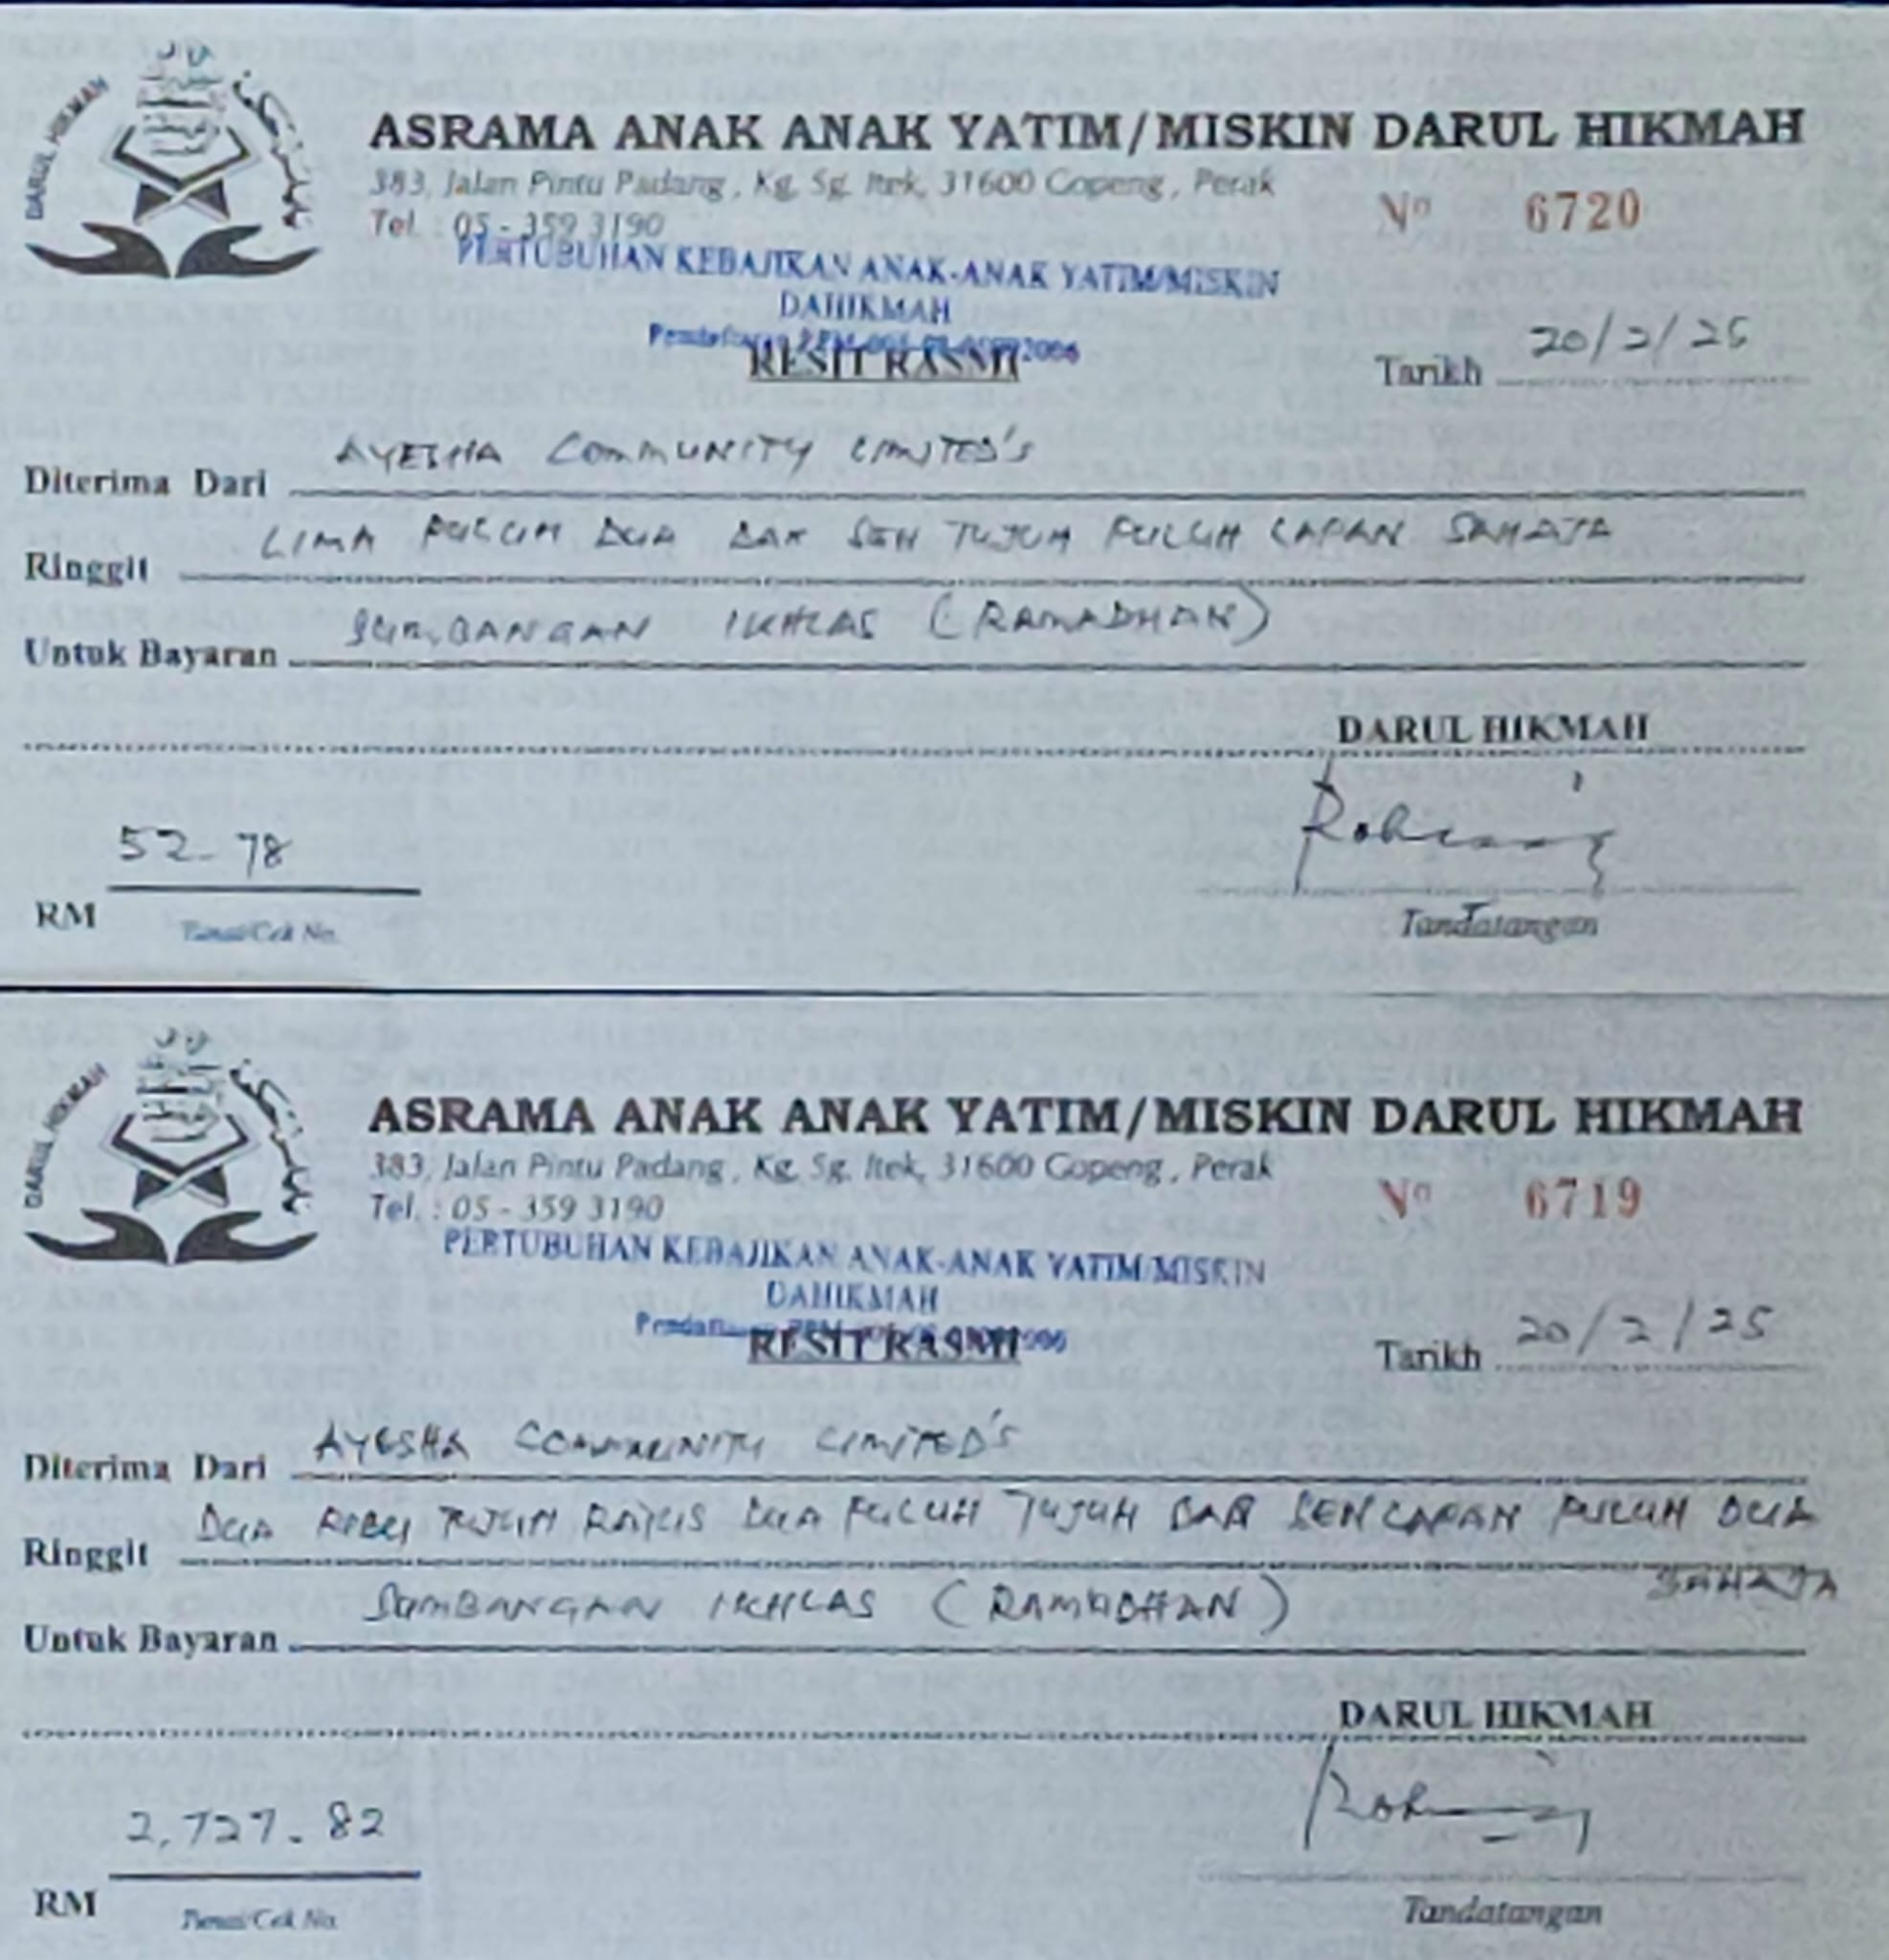 DARUL HIKMAH
ASRAMA ANAK ANAK YATIM/MISKIN DARUL HIKMAH
383, Jalan Pintu Padang, Kg. Sg. Itek, 31600 Gopeng, Perak
Tel. : 05 - 359 3190
Nº 6720
PERTUBUHAN KEBAJIKAN ANAK-ANAK YATIM/MISKIN
DAHIKMAH
RESIT RASMI
Tarikh 20/2/25
Diterima Dari AYESHA COMMUNITY LIMITED'S
Ringgit LIMA PULUH DUA DAN SEN TUJUH PULUH LAPAN SAHAJA
Untuk Bayaran SUMBANGAN IKHLAS (RAMADHAN)
DARUL HIKMAH
52-78
RM
Tunai/Cek No.
Tandatangan
DARUL HIKMAH
ASRAMA ANAK ANAK YATIM/MISKIN DARUL HIKMAH
383, Jalan Pintu Padang, Kg. Sg. Itek, 31600 Gopeng, Perak
Tel. : 05 - 359 3190
Nº 6719
PERTUBUHAN KEBAJIKAN ANAK-ANAK YATIM/MISKIN
DAHIKMAH
RESIT RASMI
Tarikh 20/2/25
Diterima Dari AYESHA COMMUNITY LIMITED'S
Ringgit DUA RIBU TUJUH RATUS DUA PULUH TUJUH DAN SEN LAPAN PULUH DUA
SAHAJA
Untuk Bayaran SUMBANGAN IKHLAS (RAMADHAN)
DARUL HIKMAH
2,727.82
RM
Tunai/Cek No.
Tandatangan